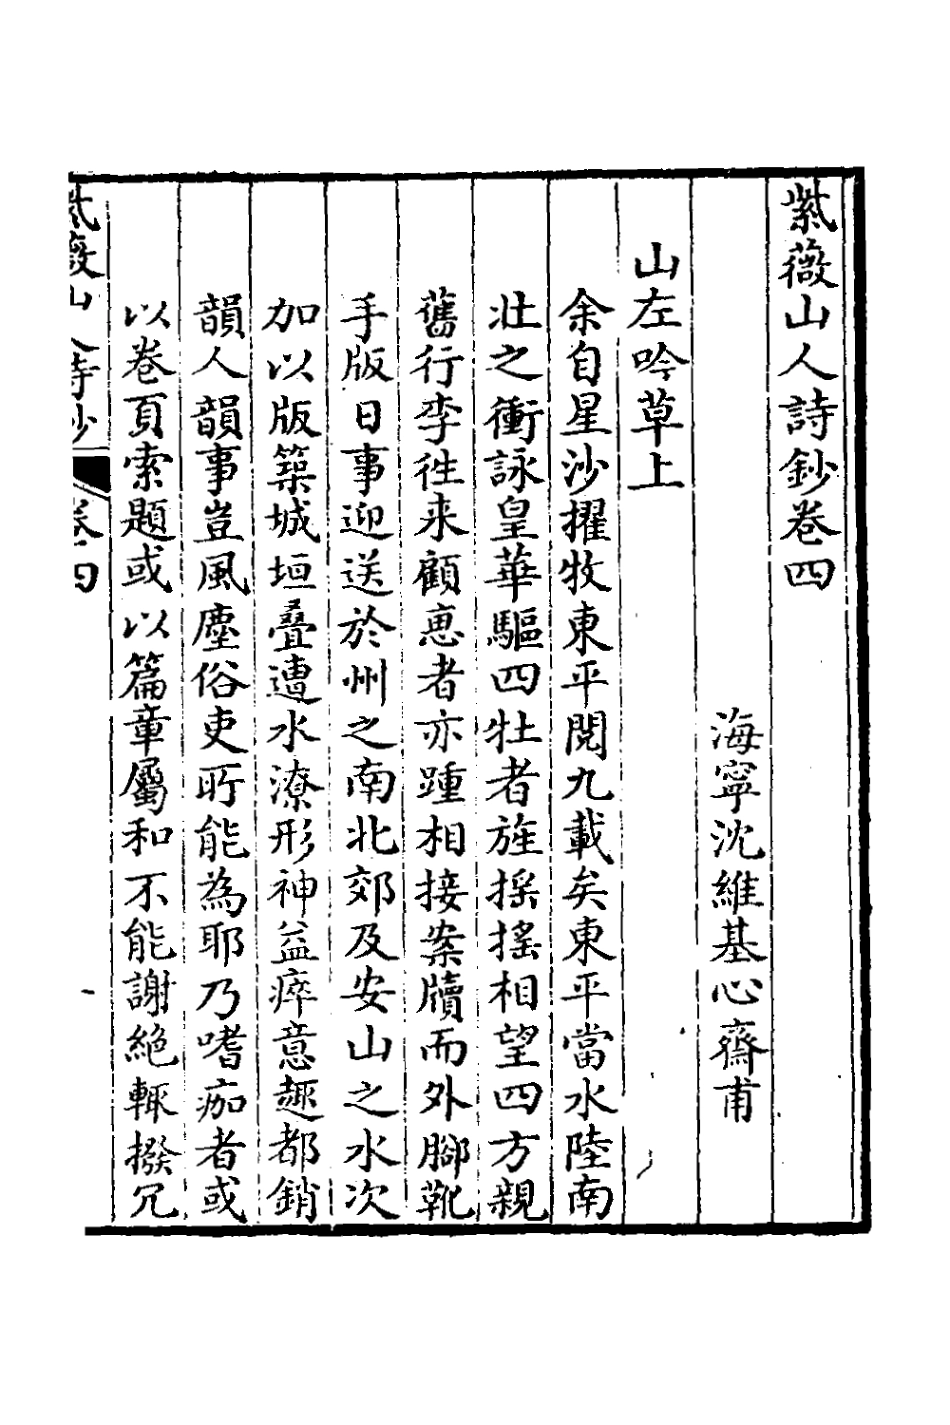 紫薇山人詩鈔卷四
海寧沈維基心齋甫
山左吟草上
余自星沙擢牧東平閱九載矣東平當水陸南
壯之衝詠皇華驅四牡者旌搖搖相望四方親
舊行李徃来顧恵者亦踵相接案牘而外腳靴
手版日事迎送於州之南北郊及安山之水次
加以版築城垣叠遭水潦形神益瘁意趣都銷
韻人韻事豈風塵俗吏所能為耶乃嗜痂者或
以巻頁索題或以篇章屬和不能謝絕輙撥冗
紫薇山人詩鈔 卷四